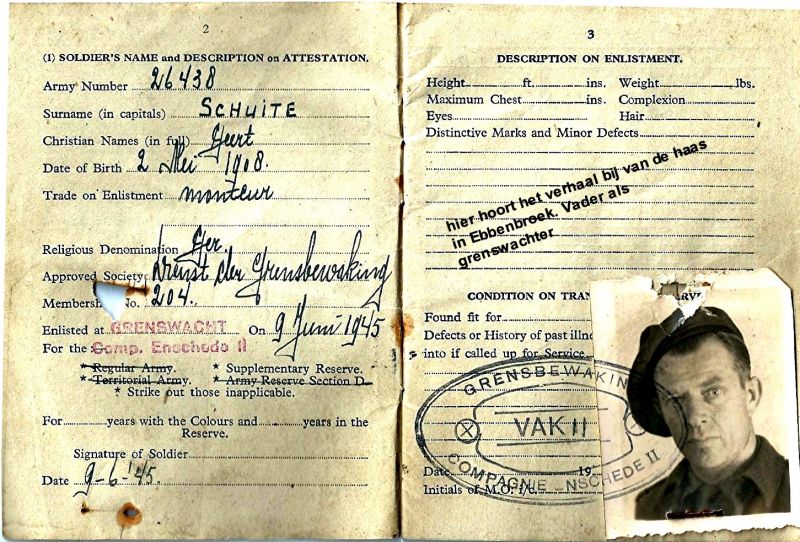 2
(1) SOLDIER'S NAME and DESCRIPTION on ATTESTATION.
Army Number 26438
Surname (in capitals) SCHUITE
Christian Names (in full) Geert
Date of Birth 2 Mei 1908.
Trade on Enlistment monteur
Religious Denomination Ger.
Approved Society Dienst der Grensbewaking
Membership No. 204.
Enlisted at GRENSWACHT On 9 Juni 1945
For the Comp. Enschede II
* Regular Army. * Supplementary Reserve.
* Territorial Army. * Army Reserve Section D.
* Strike out those inapplicable.
For years with the Colours and years in the
Reserve.
Signature of Soldier
Date 9-6-'45.
3
DESCRIPTION ON ENLISTMENT.
Height ft. ins. Weight lbs.
Maximum Chest ins. Complexion
Eyes Hair
Distinctive Marks and Minor Defects
hier hoort het verhaal bij van de haas
in Ebbenbroek. Vader als
grenswachter
CONDITION ON TRAN
Found fit for
Defects or History of past illne
into if called up for Service.
GRENSBEWAKIN
VAK II
COMPAGNIE NSCHEDE II
Date 19
Initials of M.O. i/c.